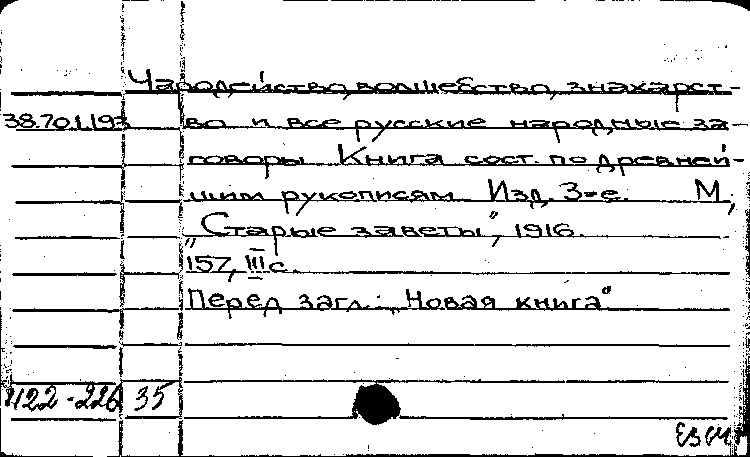 Чародейство, волшебство, знахарст-
38.701.193 во и все русские народные за-
говоры. Книга сост. по древней-
шим рукописям. Изд. 3-е. М.,
„Старые заветы", 1916.
157, III с.
Перед загл.: „Новая книга"
422-226 35